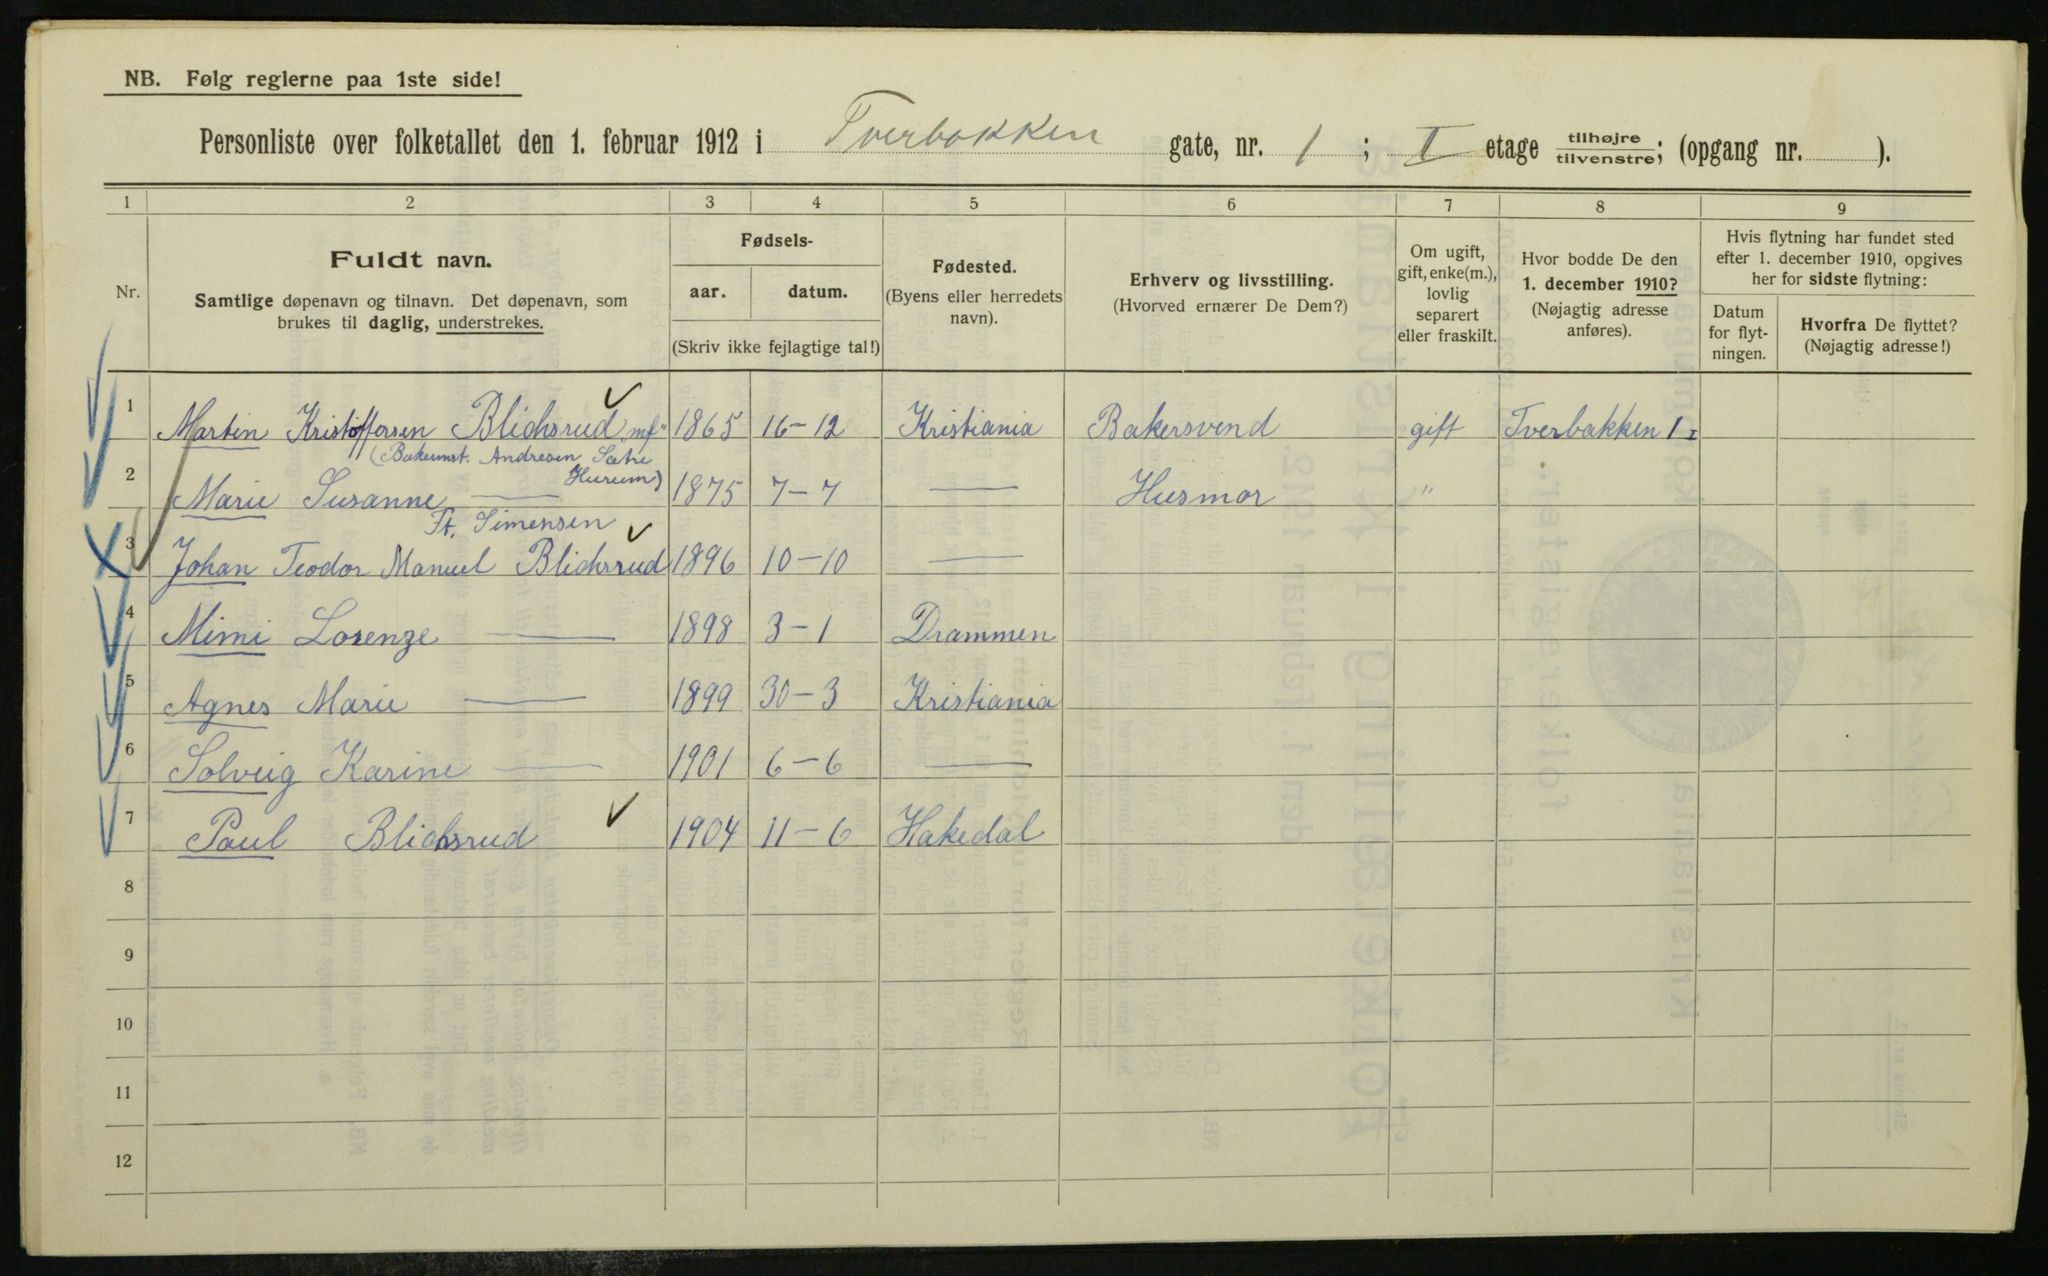 NB. Følg reglerne paa 1ste side!
Personliste over folketallet den 1. februar 1912 i Tverbakken gate, nr. 1 ; I etage tilhøjre/tilvenstre; (opgang nr. ).
1 2 3 4 5 6 7 8 9
Nr.
Fuldt navn.
Samtlige døpenavn og tilnavn. Det døpenavn, som
brukes til daglig, understrekes.
Fødsels-
aar. datum.
(Skriv ikke fejlagtige tal!)
Fødested.
(Byens eller herredets
navn).
Erhverv og livsstilling.
(Hvorved ernærer De Dem?)
Om ugift,
gift, enke(m.),
lovlig
separert
eller fraskilt.
Hvor bodde De den
1. december 1910?
(Nøjagtig adresse
anføres).
Hvis flytning har fundet sted
efter 1. december 1910, opgives
her for sidste flytning:
Datum
for flyt-
ningen.
Hvorfra De flyttet?
(Nøjagtig adresse!)
1 Martin Kristoffersen Blichsrud "mf" 1865 16-12 Kristiania Bakersvend gift Tverbakken 1 I
(Bakermst. Andresen Sætre
Hurum)
2 Marie Susanne — 1875 7-7 — Husmor "
Fr. Simensen
3 Johan Teodor Manuel Blichsrud 1896 10-10 —
4 Mimi Lorenze — 1898 3-1 Drammen
5 Agnes Marie — 1899 30-3 Kristiania
6 Solveig Karine — 1901 6-6 —
7 Paul Blichsrud 1904 11-6 Hakedal
8
9
10
11
12